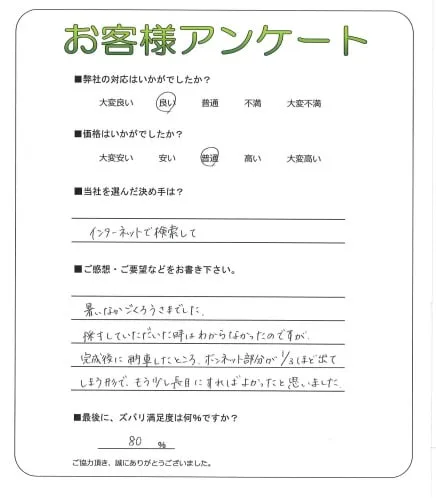 お客様アンケート
■弊社の対応はいかがでしたか？
大変良い 良い 普通 不満 大変不満
■価格はいかがでしたか？
大変安い 安い 普通 高い 大変高い
■当社を選んだ決め手は？
インターネットで検索して
■ご感想・ご要望などをお書き下さい。
暑いなかごくろうさまでした。
探すしていただいた時はわからなかったのですが、
完成後に納車したところ、ボンネット部分が1/3ほど出て
しまう形で、もう少し長目にすればよかったと思いました。
■最後に、ズバリ満足度は何％ですか？
80 %
ご協力頂き、誠にありがとうございました。